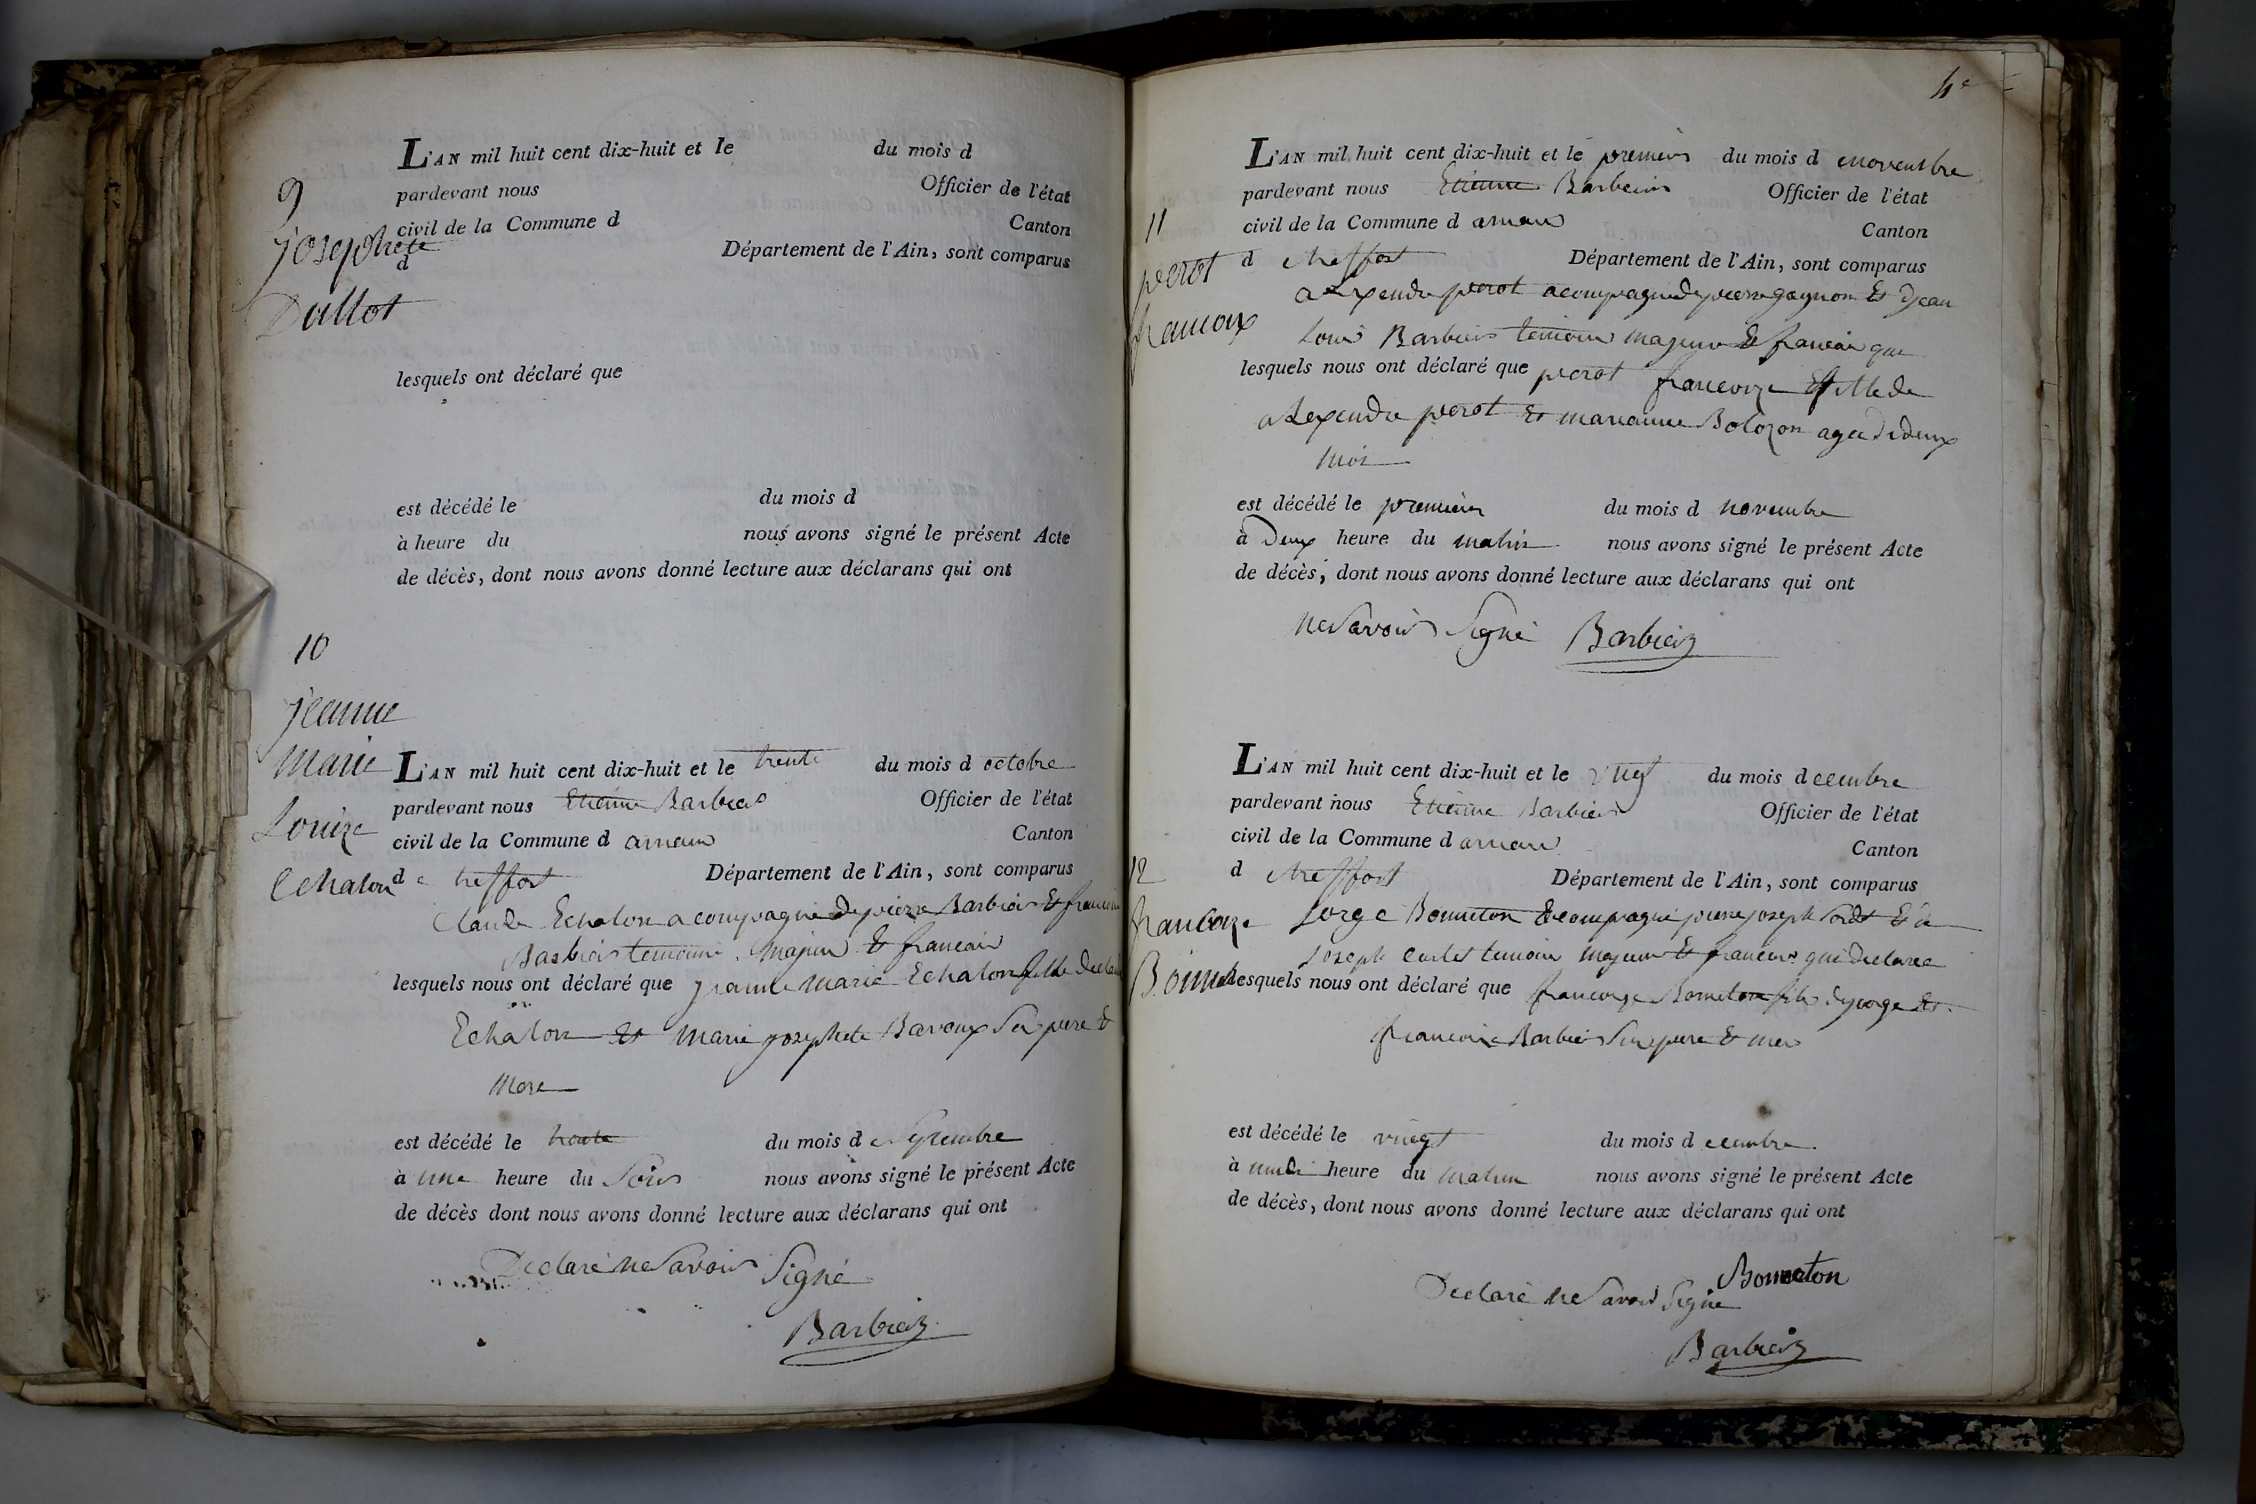 9
josephete
Dullot
L'AN mil huit cent dix-huit et le du mois d
pardevant nous Officier de l'état
civil de la Commune d Canton
d Département de l'Ain, sont comparus
lesquels ont déclaré que
est décédé le du mois d
à heure du nous avons signé le présent Acte
de décès, dont nous avons donné lecture aux déclarans qui ont
10
jeanne
marie
Louize
Echalon
L'AN mil huit cent dix-huit et le trente du mois d octobre
pardevant nous Etienne Barbier Officier de l'état
civil de la Commune d arnan Canton
d e treffort Département de l'Ain, sont comparus
Claude Echalon acompagné de pierre Barbier Et
Barbier temoins majeur Et francais
lesquels nous ont déclaré que jeanne marie Echalon fille de
Echalon Et marie josephete Bavoux Ses pere Et
mere
est décédé le trente du mois d septembre
à une heure du Soir nous avons signé le présent Acte
de décès dont nous avons donné lecture aux déclarans qui ont
Declaré ne Savoir Signé
Barbier
4e
11
perot
L'AN mil huit cent dix-huit et le premier du mois d novembre
pardevant nous Etienne Barbier Officier de l'état
civil de la Commune d arnan Canton
d treffort Département de l'Ain, sont comparus
alexendre perot acompagné de pierre gagnon Et djean
Louis Barbier temoins majeur Et francais que
lesquels nous ont déclaré que perot francoize Et fille de
alexendre perot Et marianne Bolozon agee de deux
mois
est décédé le premier du mois d novembre
à Deux heure du matin nous avons signé le présent Acte
de décès, dont nous avons donné lecture aux déclarans qui ont
ne Savoir Signé Barbier
12
francoize
L'AN mil huit cent dix-huit et le vingt du mois d cembre
pardevant nous Etienne Barbier Officier de l'état
civil de la Commune d arnan Canton
d treffort Département de l'Ain, sont comparus
jorge Bonneton acompagné pierre joseph Et de
joseph temoins majeur Et francais qui declaree
lesquels nous ont déclaré que francoize Bonneton de jorge Et
francoize Barbier Ses pere Et mere
est décédé le vingt du mois d cembre
à heure du matin nous avons signé le présent Acte
de décès, dont nous avons donné lecture aux déclarans qui ont
Bonneton
Declaré ne Savoir Signé
Barbier